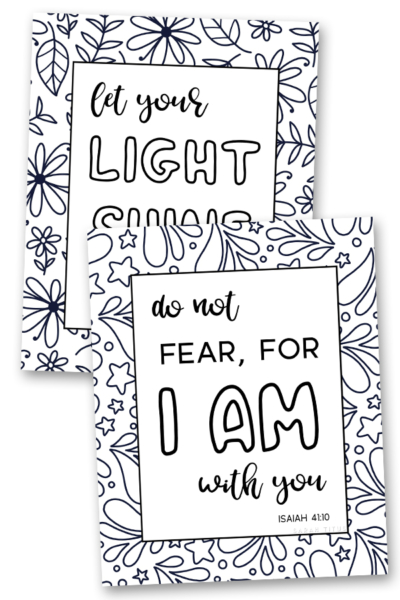 let your
LIGHT
SHINE
do not
FEAR, FOR
I AM
with you
ISAIAH 41:10